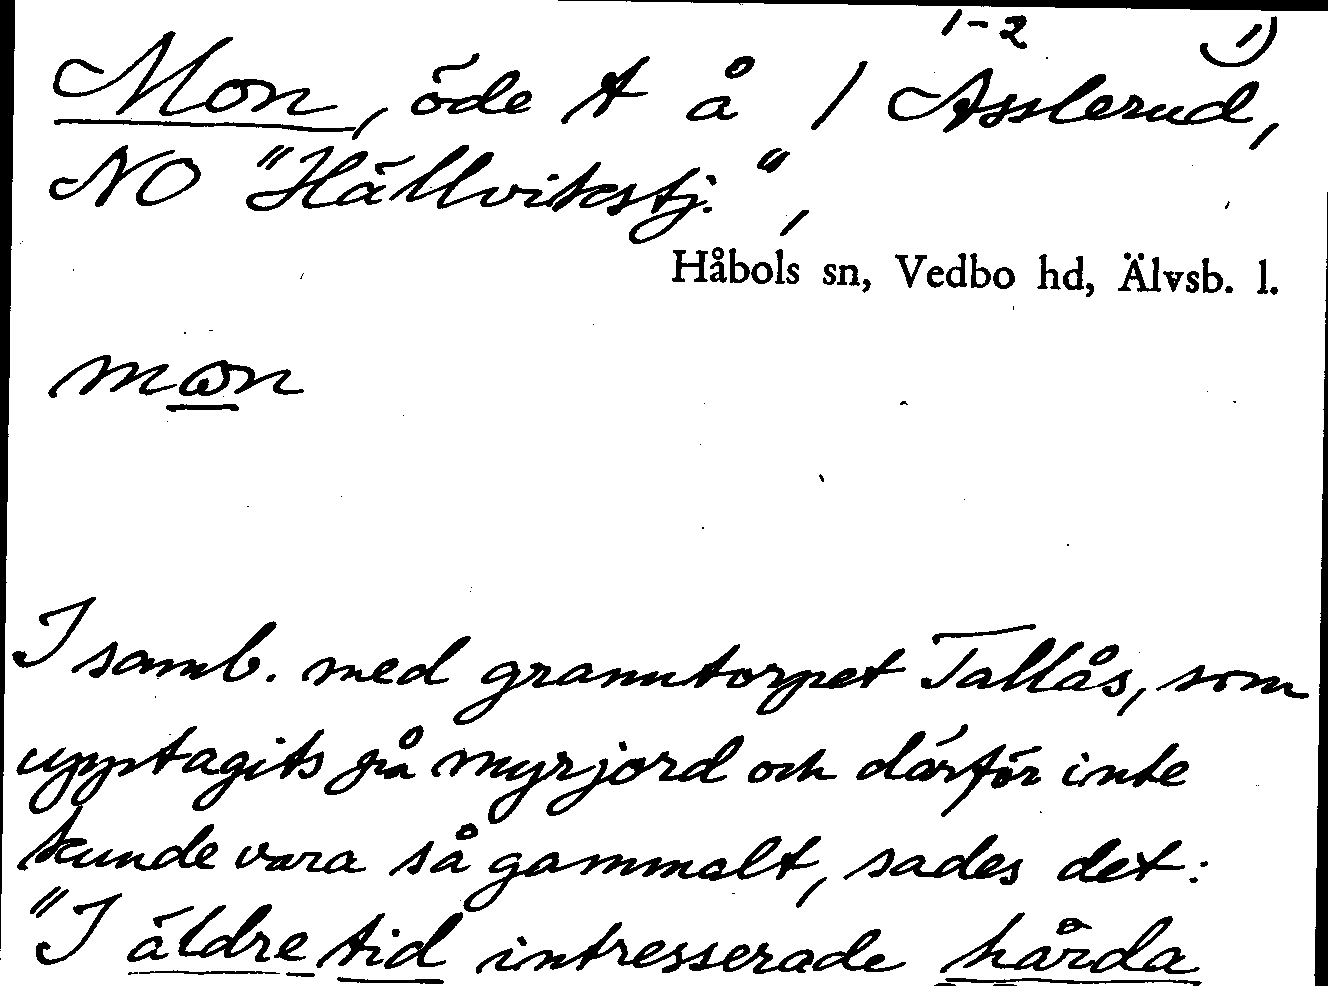 1-2 1)
Mon, öde t å / Asslerud,
NO "Hällvikstj.",
Håbols sn, Vedbo hd, Älvsb. l.
I samb. med granntorpet Tallås, som
upptagits på myrjord och därför inte
kunde vara så gammalt, sades det:
"I äldre tid intresserade hårda